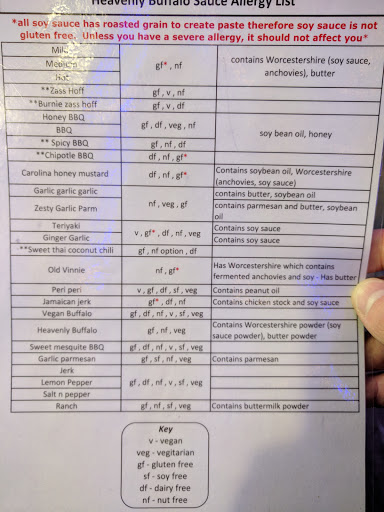 Heavenly Buffalo Sauce Allergy List
*all soy sauce has roasted grain to create paste therefore soy sauce is not
gluten free. Unless you have a severe allergy, it should not affect you*
Mild
Medium
Hot
gf*, nf
contains Worcestershire (soy sauce,
anchovies), butter
**Zass Hoff
gf, v, nf
**Burnie zass hoff
gf, v, df
Honey BBQ
BBQ
gf, df, veg, nf
soy bean oil, honey
** Spicy BBQ
gf, nf, df
**Chipotle BBQ
df, nf, gf*
Carolina honey mustard
df, nf, gf*
Contains soybean oil, Worcestershire
(anchovies, soy sauce)
Garlic garlic garlic
Zesty Garlic Parm
nf, veg, gf
contains butter, soybean oil
contains parmesan and butter, soybean
oil
Teriyaki
Ginger Garlic
v, gf*, df, nf, veg
Contains soy sauce
Contains soy sauce
**Sweet thai coconut chili
gf, nf option, df
Old Vinnie
nf, gf*
Has Worcestershire which contains
fermented anchovies and soy - Has butter
Peri peri
v, gf, df, sf, veg
Contains peanut oil
Jamaican jerk
gf*, df, nf
Contains chicken stock and soy sauce
Vegan Buffalo
gf, df, nf, v, sf, veg
Heavenly Buffalo
gf, nf, veg
Contains Worcestershire powder (soy
sauce powder), butter powder
Sweet mesquite BBQ
gf, df, nf, v, sf, veg
Garlic parmesan
gf, sf, nf, veg
Contains parmesan
Jerk
Lemon Pepper
Salt n pepper
gf, df, nf, v, sf, veg
Ranch
gf, nf, sf, veg
Contains buttermilk powder
Key
v - vegan
veg - vegitarian
gf - gluten free
sf - soy free
df - dairy free
nf - nut free